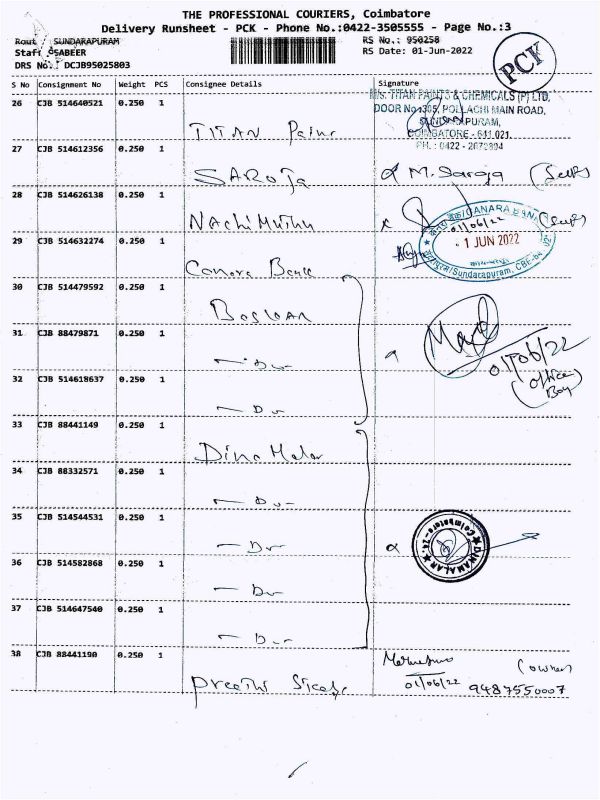 THE PROFESSIONAL COURIERS, Coimbatore
Delivery Runsheet - PCK - Phone No.:0422-3505555 - Page No.:3
Rout SUNDARAPURAM
RS No.: 950258
PCK
Staff SABEER
RS Date: 01-Jun-2022
DRS No.: DCJB95025803
S No Consignment No Weight PCS Consignee Details Signature
26 CJB 514640521 0.250 1
M/s. TITAN PAINTS & CHEMICALS (P) LTD,
DOOR No : 305, POLLACHI MAIN ROAD,
SUNDARAPURAM,
COIMBATORE - 641 021.
TITAN Paint
27 CJB 514612356 0.250 1
PH. : 0422 - 2672894
SAROJA
M. Saroja (Self)
28 CJB 514626138 0.250 1
Nachimuthu
(Self)
CANARA BANK
01/06/22
29 CJB 514632274 0.250 1
1 JUN 2022
Sundarapuram, CBE-
Canara Bank
30 CJB 514479592 0.250 1
31 CJB 88479871 0.250 1
Do
01/06/22
32 CJB 514618637 0.250 1
(Office Boy)
Do
33 CJB 88441149 0.250 1
Dina Malar
34 CJB 88332571 0.250 1
Do
35 CJB 514544531 0.250 1
Do
DINAMALAR
Coimbatore - 24.
36 CJB 514582868 0.250 1
Do
37 CJB 514647540 0.250 1
Do
38 CJB 88441190 0.250 1
(owner)
Preethi
01/06/22 9487550007